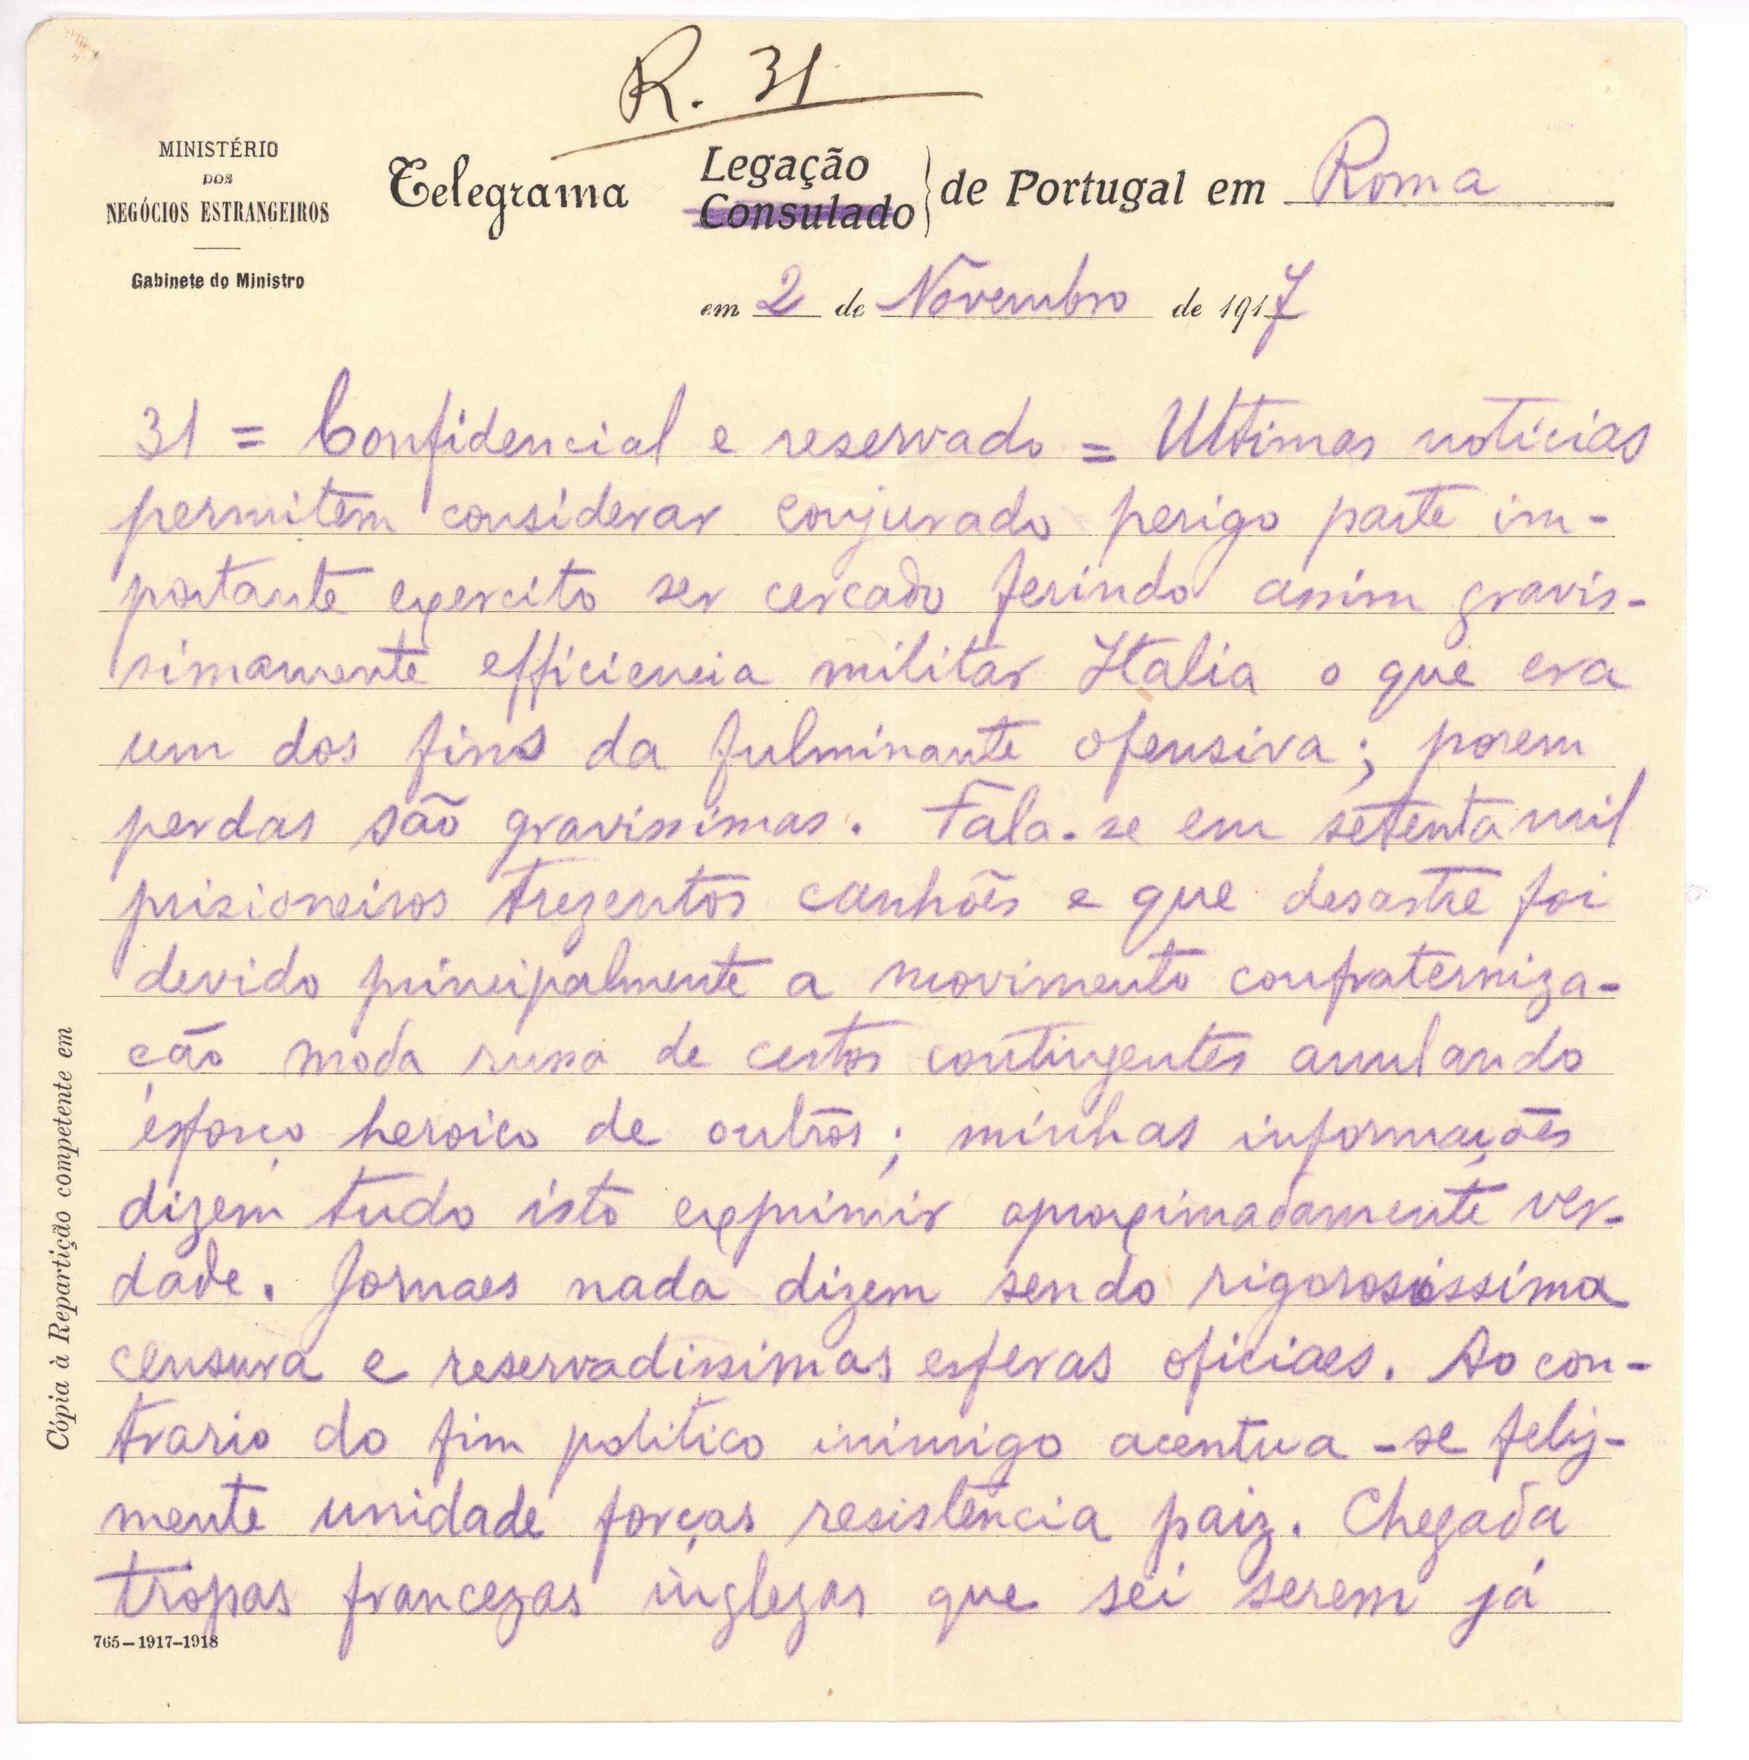 R. 31
MINISTÉRIO
DOS
NEGÓCIOS ESTRANGEIROS
Gabinete do Ministro
Telegrama Legação
Consulado de Portugal em Roma
em 2 de Novembro de 1917
31 = Confidencial e reservado = Ultimas notícias
permitem considerar conjurado perigo parte im-
portante exercito ser cercado ferindo assim gravis-
simamente efficiencia militar Italia o que era
um dos fins da fulminante ofensiva; porem
perdas são gravissimas. Fala-se em setenta mil
prisioneiros trezentos canhões e que desastre foi
devido principalmente a movimento confraterniza-
ção moda russa de certos contingentes anulando
esforço heroico de outros; minhas informações
dizem tudo isto exprimir aproximadamente ver-
dade. Jornaes nada dizem sendo rigorosissima
censura e reservadissimas esferas oficiaes. Ao con-
trario do fim politico inimigo acentua-se feliz-
mente unidade forças resistência paiz. Chegada
tropas francezas inglezas que sei serem já
765-1917-1918
Cópia à Repartição competente em